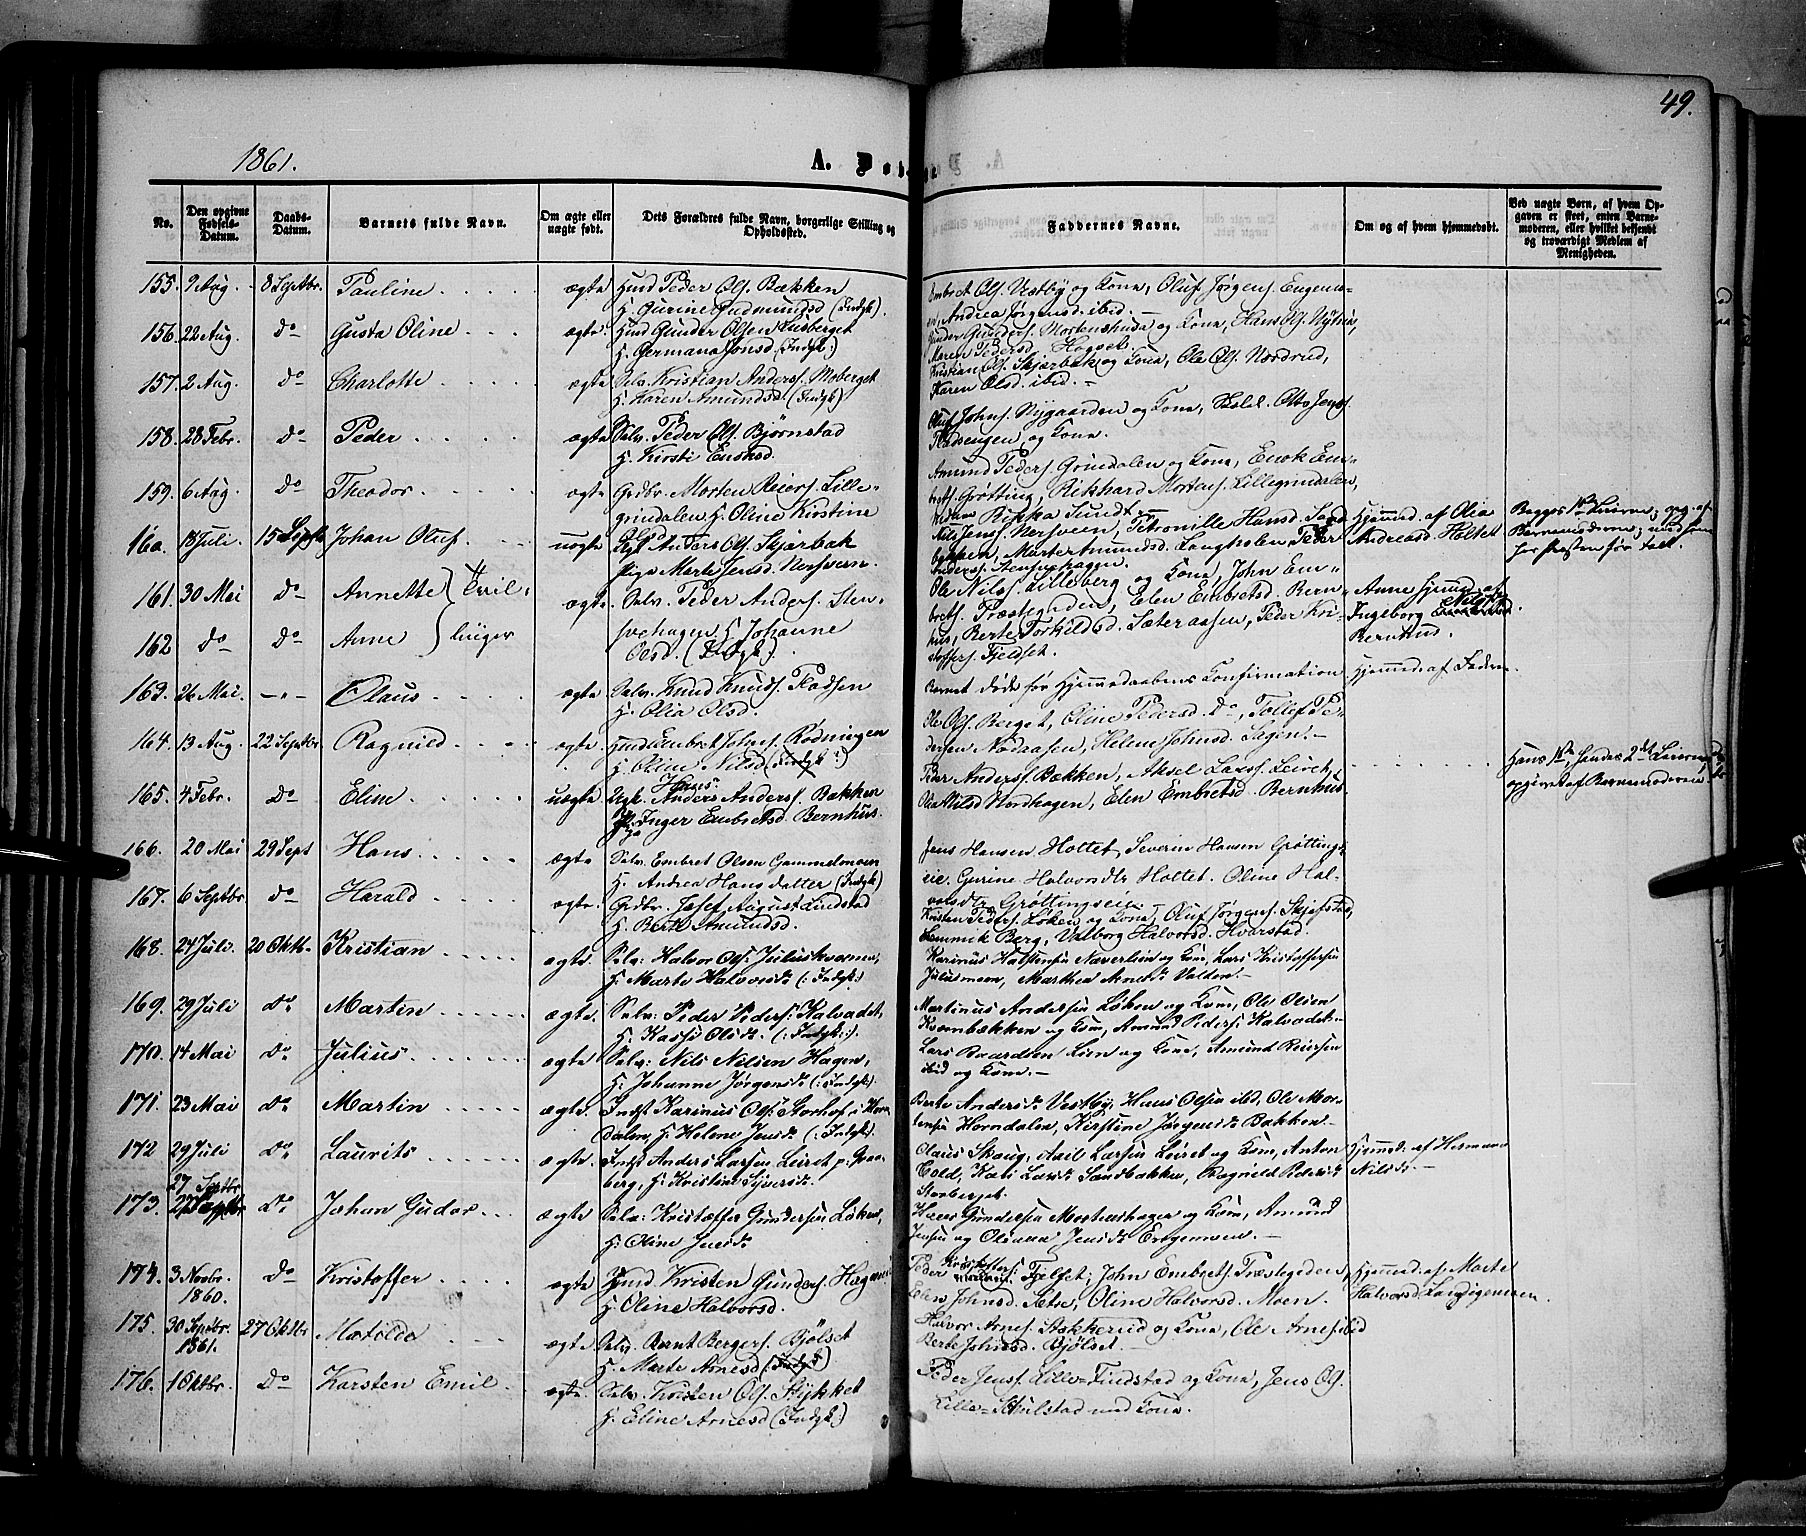 49.
1861.
A. Døb
No.
Den opgivne Fødsels-Datum.
Daabs-Datum.
Barnets fulde Navn.
Om ægte eller uægte født.
Dets Forældres fulde Navn, borgerlige Stilling og Opholdssted.
Faddernes Navne.
Om og af hvem hjemmedøbt.
Ved uægte Børn, af hvem Opgaven er skeet, enten Barnemoderen, eller hvilket bekjendt og troværdigt Medlem af Menigheden.
155. 9 Aug. 8 Septbr. Pauline ægte Huusmd Peder Ols. Bækken
H. Gurine Gudmundsd (Indgk).
Embret Ols. Vestby og Kone, Oluf Jørgens. Engemo-
en, Andrea Jørgensd. ibid.
156. 22 Aug. Do Gusta Oline ægte. Huusmd Gunder Olsen Lusberget
H. Germana Jonsd. (Indgk:)
Gunder Gunders. Mortenshuus og Kone, Hans Ols. Nytrø,
Maren Peders. Hogset.
157. 2 Aug. Do Charlotte ægte Selv. Kristian Anders. Moberget
H. Karen Amundsd (Indgk)
Kristian Ols. Skjærbæk og Kone, Ole Ols. Nordrud,
Karen Olsd. ibid.
158. 28 Febr. Do Peder ægte Selv. Peder Ols. Bjørnstad
H. Kirsti Enoksd.
Oluf Johns. Nygaarden og Kone, Otto Jens.
Pladsengen og Kone.
159. 6 Aug. Do Theodor ægte Grdbr. Morten Reiers. Lille-
grindalen H. Oline Kirstine
Amund Peders. Grindalen og Kone, Enok Em-
brets. Grøtting, Rikhard Mortens. Lillegrindalen,
Rikka Sundt
160. 18 Juli. 15 Septbr Johan Oluf uægte Ugk. Anders Ols. Skjærbæk
Pige Marte Jensd. Nersveen.
Nils Jens. Nersveen, Petronille Hansd. Sand
bakken, Marte Amundsd. Langholen Peder
Anders. Stensvehagen.
Hjemmed. af Olia
Andreasd. Holtet
Begges 1ste Leierm; opg. af
Barnemoderen;
for Præsten før talt.
161. 30 Mai Do Annette } Tvil- ægte Selv. Peder Anders. Sten-
162 Do Do Anne } linger
svehagen H. Johanne
Olsd. (Indgk).
Ole Nils. Lilleberg og Kone, John Em-
brets. Præstegården, Elen Embretsd. Bern-
hus, Berte Torkildsd. Sæteraasen, Peder Kri-
stoffers. Fjeldset.
Anne hjemmed. af
Ingeborg Nilsd.
Bernhus.
163. 26 Mai. -"- Olaus ægte Selv. Knud Knuds. Pladsen
H. Olia Olsd.
Barnet døde før Hjemmedaabens Konfirmation
Hjemmed. af Faderen.
164. 13 Aug. 22 Septbr Ragnild ægte. Huusmd Embret Johns. Rødningen
H. Oline Nilsd (Indgk:)
Ole Ols. Berget, Oline Pedersd. Do, Tollef Pe-
dersen Nodaasen, Helene Johnsd. Hagen.
165. 4 Febr. Do Eline uægte Ugk. Anders Anders. Bækken
Hans
Pige Inger Embretsd. Bernhus.
Peder Anders. Bækken, Aksel Lars. Leiret,
Olia Nilsd Nordhagen, Elen Embretsd. Bernhus.
Hans 1ste, hendes 2det Leierm
opgivet af Barnemoderen
166. 20 Mai 29 Sept Hans ægte Selv. Embret Olsen Gammelmoen
H. Andrea Hansdatter (Indgk)
Jens Hansen Holtet, Severin Hansen Grøttings-
eie, Gurine Halvorsdtr Holtet. Oline Hal-
vorsdtr Grøttingseie.
167. 6 Septbr Do Harald ægte. Grdbr. Josef August Lindstad
H. Berte Amundsd.
Kristen Peders. Løken og Kone, Oluf Jørgens. Skjefstad,
Lemmik Berg, Valborg Halvorsd. Hvarstad.
168. 24 Juli. 20 Oktbr. Kristian ægte. Selv: Halvor Ols: Juluskvernen,
H. Marte Halvorsdr (: Indgk:)
Karinus Halstensen Næverlien og Kone, Lars Kristoffersen
Julusmoen, Marthea Arnedr Valden.
169. 29 Juli Do Martin ægte. Selv: Peder Peders: Kalvadet.
H. Kassi Olsdr. (: Indgk:).
Martinus Andersen Løken og Kone, Ole Olsen
Kvernbækken og Kone, Amund Peders: Kalvadet.
170. 14 Mai Do Julius ægte Selv: Nils Nilsen Hagen,
H. Johanne Jørgensdr (: Indgk:).
Lars Baardsen Lien og Kone, Amund Reiersen
ibid og Kone.
171. 23 Mai Do Martin ægte. Indst Karinus Ols: Storhof i Horn
dalen, H. Helene Jensdr (: Indgk:).
Berte Andersdr Vestby, Hans Olsen ibid, Ole Mor-
tensen Horndalen, Kirstine Jørgensdr Bakken.
172 29 Juli Do Laurits ægte. Indst Anders Larsen Leiret p. Graa-
berg, H. Kristine Syversdr.
Olaus Skaug, Axil Larsen Leiret og Kone, Anton
Cold, Kari Larsdr Sandbakken, Ragnild Pedersdr
Storberget.
Hjemmed: af Hermana
Nilsdr.
27 Septbr.
173. Do Johan Gudar ægte Selv: Kristoffer Gundersen Løken,
H. Oline Jensdr
Hans Gundersen Mortenshagen og Kone, Amund
Jensen og Olianna Jensdr Engemoen.
174. 3 Novbr. 1860. Do Kristoffer ægte Huusmd. Kristen Gunders. Hagen
H. Oline Halvorsd.
Peder Kristoffers. Fjelset, John Embrets. Præstegården,
Eline Johnsd. Sætre, Oline Halvorsd. Moen.
Hjemmed. af Marte
Halvorsd.
175. 30 Septbr. 1861. 27 Oktbr Matilde ægte. Selv. Bernt Bergers. Bjølset
H. Marte Arnesd (Indgk)
Halvor Arnes. Askkerud og Kone, Ole Arnes. ibid
Berte Johnsd. Bjølset.
176. 1 Oktbr. Do Karsten Emil ægte. Selv. Kristen Ols. Stykket
H. Eline Arnesd (Indgk:)
Peder Jens. Lille-Findstad og Kone, Jens Ols.
Lille-Skulstad med Kone.